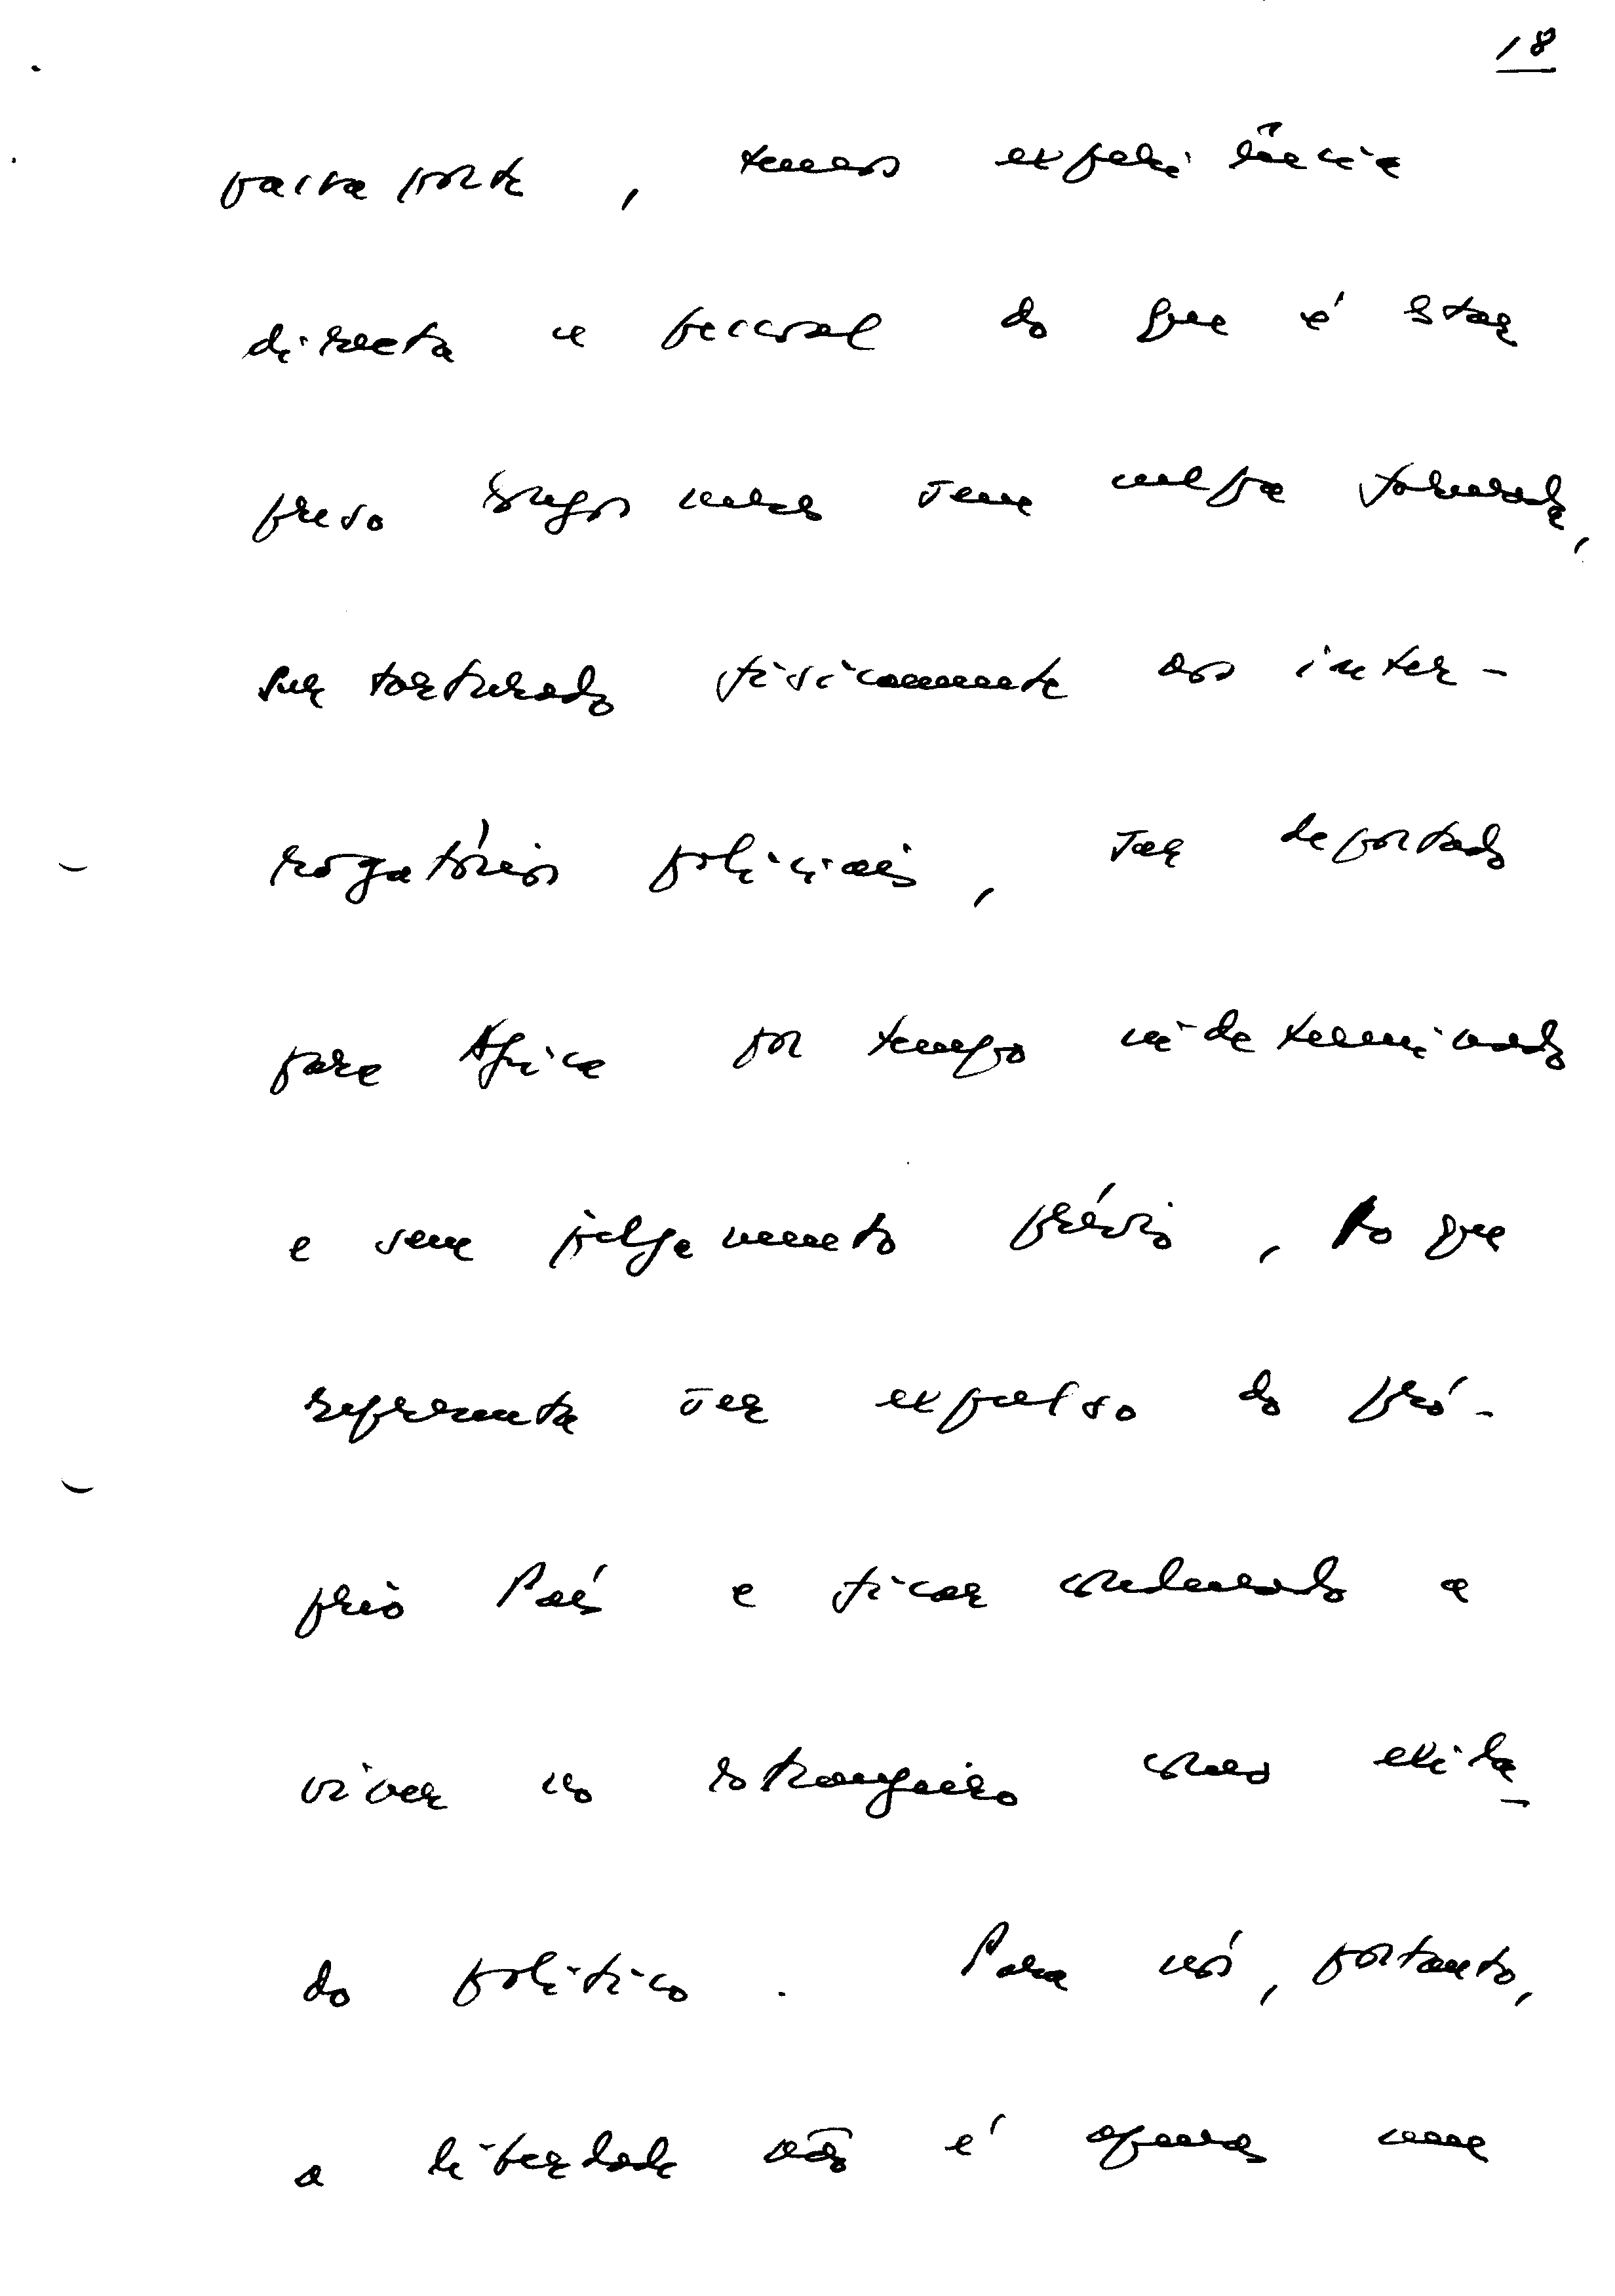 18
passaporte, temos experiência
directa e pessoal do que é estar
preso longos meses sem culpa formada,
ser torturado fisicamente aos inter-
rogatórios policiais, ser deportado
para África por tempo indeterminado
e sem julgamento prévio, do que
representa ser expulso do pró-
prio País e ficar condenado a
viver no estrangeiro como exila-
do político. Para nós, portanto,
a liberdade não é apenas uma